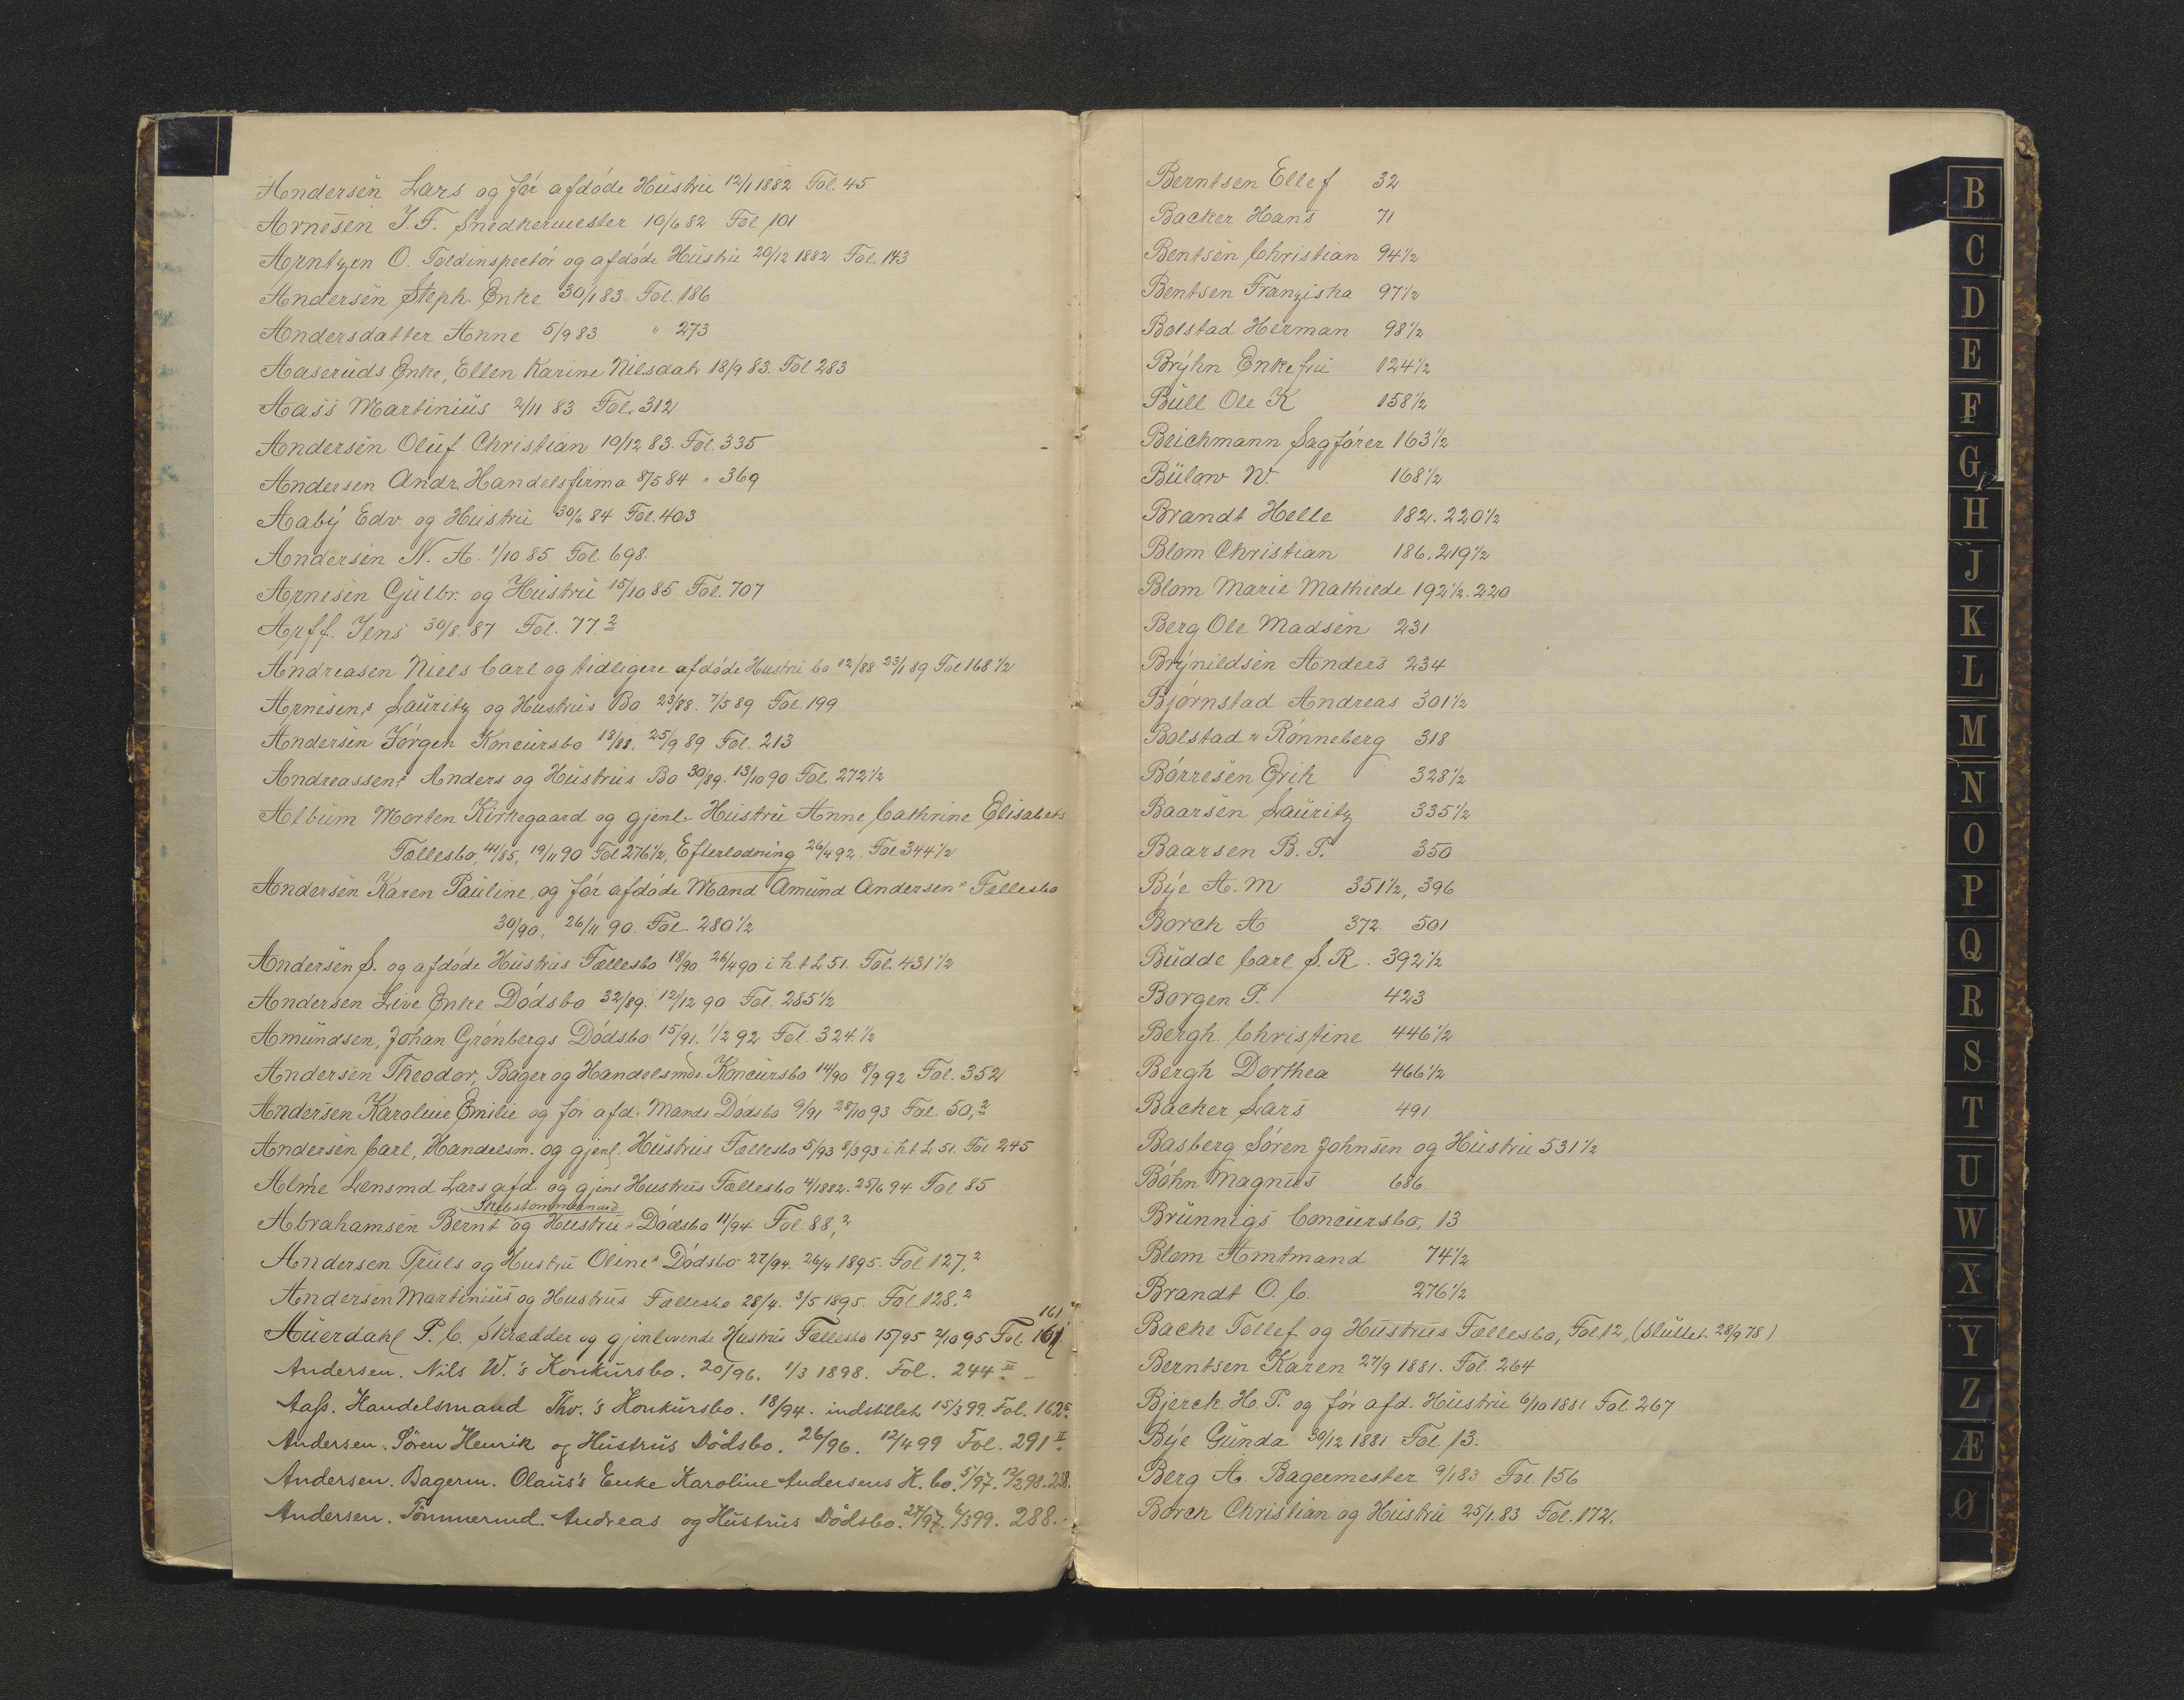 Andersen Lars og før afdøde Hustru 12/1 1882 Fol. 45
Arnesen J. F. Snedkermester 10/6 82 Fol 101
Arntzen O. Toldinspectør og afdøde Hustru 20/12 1882 Fol. 143
Andersen Steph. Enke 30/1 83 Fol. 186
Andersdatter Anne 5/9 83 " 273
Aaseruds Enke, Ellen Karine Nilsdatr 18/9 83. Fol 283
Aass Martinius 2/11 83 Fol. 312
Andersen Oluf Christian 10/12 83. Fol. 335
Andersen Andr. Handelsfirma 8/5 84 " 369
Aaby Edv. og Hustru 30/6 84 Fol. 403
Andersen N. A. 1/10 85 Fol 698.
Arnesen Gulbr. og Hustru 15/10 85 Fol. 707
Arff. Jens 30/8. 87 Fol. 77.2
Andreasen Niels Carl og tidligere afdøde Hustru bo 12/88 23/1 89 Fol 168 1/2
Arnesens Lauritz og Hustrus Bo 23/88. 7/5 89 Fol. 199
Andersen Jørgen Koncursbo 18/88. 25/9 89 Fol. 213
Andreassens Anders og Hustrus Bo 30/89. 13/10 90 Fol. 272 1/2
Album Morten Kirkegaard og gjenl. Hustru Anne Cathrine Elisabets
Fællesbo, 41/85, 19/11 90 Fol 276 1/2, Efterlodning 26/4 92. Fol 344 1/2
Andersen Karen Pauline, og før afdøde Mand Amund Andersens Fællesbo
30/90, 26/11 90. Fol. 280 1/2
Andersen S. og afdøde Hustrus Fællesbo 18/90. 26/4 90 i h. t. L 51. Fol. 431 1/2
Andersen Live Enke Dødsbo 32/89. 12/12 90 Fol. 285 1/2
Amundsen, Johan Grønbergs Dødsbo 15/91. 1/2 92 Fol. 324. 1/2
Andersen Theodor, Bager og Handelsmds Koncursbo 14/90 8/9 92 Fol. 352
Andersen Karoline Emilie og før afd. Mands Dødsbo 9/91 28/10 93 Fol. 50,2
Andersen Carl, Handelsm. og gjenl. Hustrus Fællesbo 5/93 8/3 93 i h. t. L 51. Fol 245
Alme Lensmd Lars afd. og gjenl Hustrus Fællesbo 4/1882. 25/6 94 Fol 85
Skibstømmermand
Abrahamsen Bernt og Hustrus Dødsbo 11/94 Fol. 88,2
Andersen Truls og Hustru Olines Dødsbo 27/94. 26/4 1895. Fol 127,2
Andersen Martinius og Hustrus Fællesbo 28/4. 3/5 1895. Fol 128,2
161
Auerdahl P. C. Skrædder og gjenlevende Hustrus Fællesbo 15/95 2/10 95 Fol. 161
Andersen. Nils W.'s Konkursbo. 20/96. 1/3 1898. Fol. 244 II
Aass. Handelsmand Thv.'s Konkursbo. 18/94. indstillet 15/3 99. Fol. 162
Andersen. Søren Henrik og Hustrus Dødsbo. 26/96. 12/4 99 Fol. 291 II
Andersen. Bagerm. Olaus's Enke Karoline Andersens K. bo. 5/97. 12/2 98. 238.
Andersen. Tømmermd. Andreas og Hustrus Dødsbo. 24/97. 6/3 99. 288.
Berntsen Ellef 32
Backer Hans 71
Bentsen Christian 94 1/2
Bentsen Franziska 97 1/2
Bolstad Herman 98 1/2
Bryhn Enkefru 124 1/2
Bull Ole K 158 1/2
Beichmann Sagfører 163 1/2
Bülow W. 168 1/2
Brandt Helle 182. 220 1/2
Blom Christian 186. 219 1/2
Blom Marie Mathilde 192 1/2. 220
Berg Ole Madsen 231
Brynildsen Anders 234
Bjørnstad Andreas 301 1/2
Bolstad & Rønneberg 318
Børresen Erik 328 1/2
Baarsen Lauritz 335 1/2
Baarsen B. P. 350
Bye A. M 351 1/2, 396
Borch A 372. 501
Budde Carl S. R. 392 1/2
Borgen P. 423
Bergh Christine 446 1/2
Bergh Dorthea 466 1/2
Backer Lars 491
Basberg Søren Johnsen og Hustru 531 1/2
Bøhn Magnus 686.
Brünnigs Concursbo, 13
Blom Amtmand 74 1/2
Brandt O. C. 276 1/2
Bache Tollef og Hustrus Fællesbo, Fol 12, (sluttet 28/9 78)
Berntsen Karen 27/9 1881. Fol. 264
Bjerck H. P. og før afd. Hustru 6/10 1881 Fol 267
Bye Gunda 30/12 1881 Fol. 13.
Berg A. Bagermester 9/1 83 Fol. 156
Borch Christian og Hustru 25/1. 83 Fol. 172.
B
C
D
E
F
G
H
J
K
L
M
N
O
P
Q
R
S
T
U
W
X
Y
Z
Æ
Ø